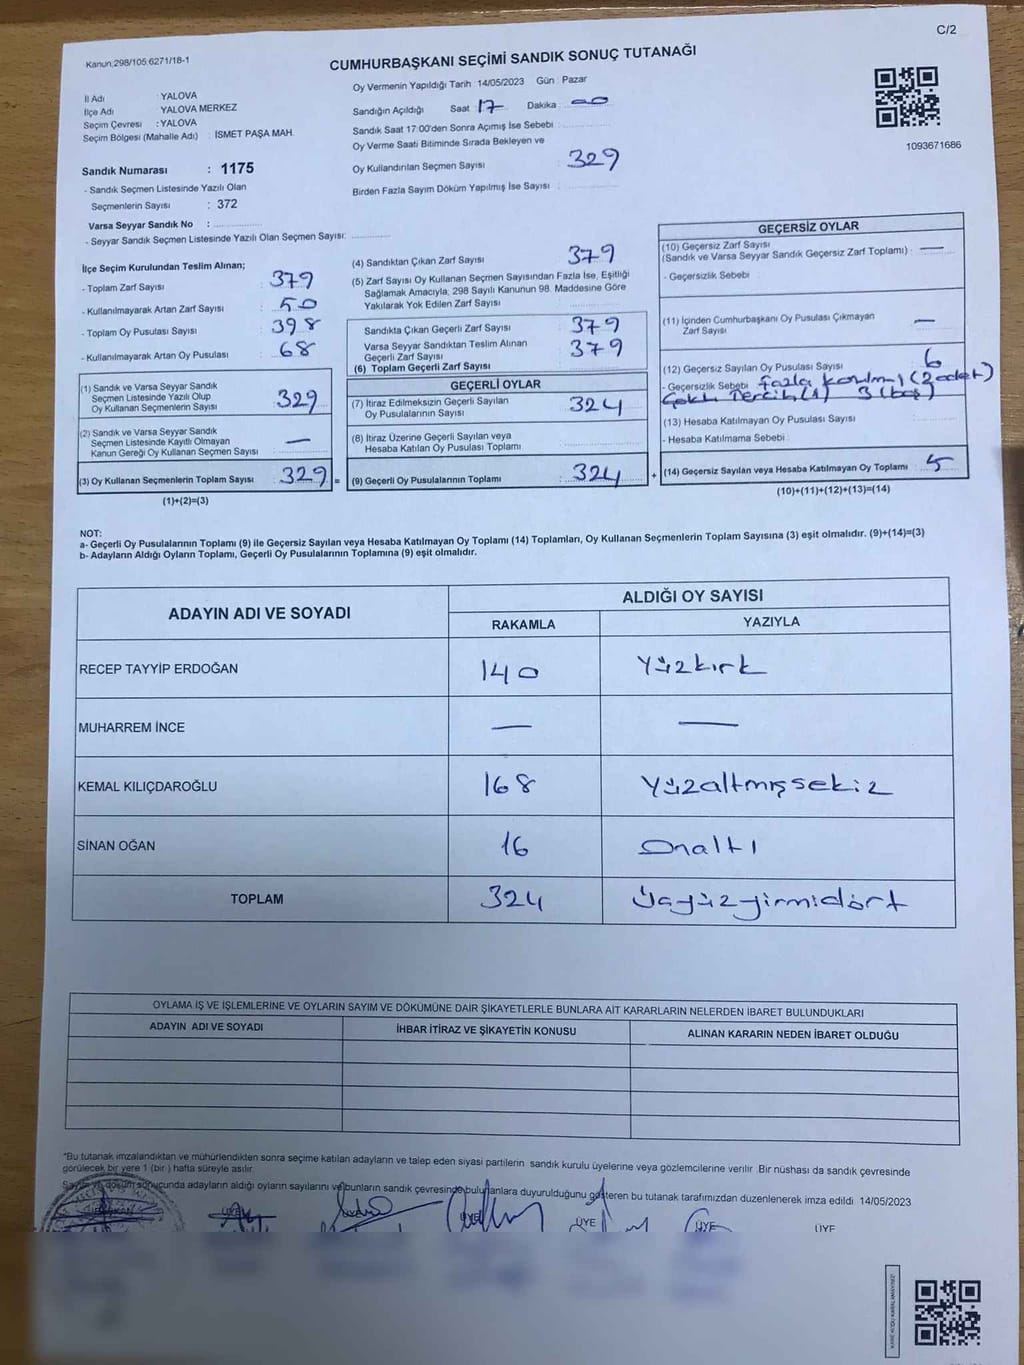 C/2
Kanun:298/105:6271/18-1
CUMHURBAŞKANI SEÇİMİ SANDIK SONUÇ TUTANAĞI
İl Adı : YALOVA
İlçe Adı : YALOVA MERKEZ
Seçim Çevresi : YALOVA
Seçim Bölgesi (Mahalle Adı) : İSMET PAŞA MAH.
Sandık Numarası : 1175
- Sandık Seçmen Listesinde Yazılı Olan
Seçmenlerin Sayısı : 372
Varsa Seyyar Sandık No :
- Seyyar Sandık Seçmen Listesinde Yazılı Olan Seçmen Sayısı:
Oy Vermenin Yapıldığı Tarih : 14/05/2023 Gün : Pazar
Sandığın Açıldığı Saat 17 Dakika 00
Sandık Saat 17:00'den Sonra Açımış İse Sebebi :
Oy Verme Saati Bitiminde Sırada Bekleyen ve
Oy Kullandırılan Seçmen Sayısı : 329
Birden Fazla Sayım Döküm Yapılmış İse Sayısı :
1093671686
İlçe Seçim Kurulundan Teslim Alınan;
- Toplam Zarf Sayısı : 379
- Kullanılmayarak Artan Zarf Sayısı : 50
- Toplam Oy Pusulası Sayısı : 398
- Kullanılmayarak Artan Oy Pusulası : 68
(1) Sandık ve Varsa Seyyar Sandık
Seçmen Listesinde Yazılı Olup
Oy Kullanan Seçmenlerin Sayısı : 329
(2) Sandık ve Varsa Seyyar Sandık
Seçmen Listesinde Kayıtlı Olmayan
Kanun Gereği Oy Kullanan Seçmen Sayısı : —
(3) Oy Kullanan Seçmenlerin Toplam Sayısı : 329 =
(1)+(2)=(3)
(4) Sandıktan Çıkan Zarf Sayısı : 379
(5) Zarf Sayısı Oy Kullanan Seçmen Sayısından Fazla İse, Eşitliği
Sağlamak Amacıyla, 298 Sayılı Kanunun 98. Maddesine Göre
Yakılarak Yok Edilen Zarf Sayısı :
Sandıkta Çıkan Geçerli Zarf Sayısı : 379
Varsa Seyyar Sandıktan Teslim Alınan
Geçerli Zarf Sayısı : 379
(6) Toplam Geçerli Zarf Sayısı :
GEÇERLİ OYLAR
(7) İtiraz Edilmeksizin Geçerli Sayılan
Oy Pusulalarının Sayısı : 324
(8) İtiraz Üzerine Geçerli Sayılan veya
Hesaba Katılan Oy Pusulası Toplamı :
(9) Geçerli Oy Pusulalarının Toplamı : 324 +
GEÇERSİZ OYLAR
(10) Geçersiz Zarf Sayısı
(Sandık ve Varsa Seyyar Sandık Geçersiz Zarf Toplamı) : —
- Geçersizlik Sebebi :
(11) İçinden Cumhurbaşkanı Oy Pusulası Çıkmayan
Zarf Sayısı : —
(12) Geçersiz Sayılan Oy Pusulası Sayısı : 6
- Geçersizlik Sebebi : Fazla (2 adet)
Tercih (1) 3 (boş)
(13) Hesaba Katılmayan Oy Pusulası Sayısı :
- Hesaba Katılmama Sebebi :
(14) Geçersiz Sayılan veya Hesaba Katılmayan Oy Toplamı : 5
(10)+(11)+(12)+(13)=(14)
NOT:
a- Geçerli Oy Pusulalarının Toplamı (9) ile Geçersiz Sayılan veya Hesaba Katılmayan Oy Toplamı (14) Toplamları, Oy Kullanan Seçmenlerin Toplam Sayısına (3) eşit olmalıdır. (9)+(14)=(3)
b- Adayların Aldığı Oyların Toplamı, Geçerli Oy Pusulalarının Toplamına (9) eşit olmalıdır.
ADAYIN ADI VE SOYADI ALDIĞI OY SAYISI
RAKAMLA YAZIYLA
RECEP TAYYİP ERDOĞAN 140 Yüzkırk
MUHARREM İNCE — —
KEMAL KILIÇDAROĞLU 168 Yüzaltmışsekiz
SİNAN OĞAN 16 Onaltı
TOPLAM 324 Üçyüzyirmidört
OYLAMA İŞ VE İŞLEMLERİNE VE OYLARIN SAYIM VE DÖKÜMÜNE DAİR ŞİKAYETLERLE BUNLARA AİT KARARLARIN NELERDEN İBARET BULUNDUKLARI
ADAYIN ADI VE SOYADI İHBAR İTİRAZ VE ŞİKAYETİN KONUSU ALINAN KARARIN NEDEN İBARET OLDUĞU
*Bu tutanak imzalandıktan ve mühürlendikten sonra seçime katılan adayların ve talep eden siyasi partilerin sandık kurulu üyelerine veya gözlemcilerine verilir. Bir nüshası da sandık çevresinde
görülecek bir yere 1 (bir ) hafta süreyle asılır.
Sayım ve döküm sonucunda adayların aldığı oyların sayılarını ve bunların sandık çevresinde bulunanlara duyurulduğunu gösteren bu tutanak tarafımızdan düzenlenerek imza edildi. 14/05/2023
BAŞKAN ÜYE ÜYE ÜYE ÜYE ÜYE